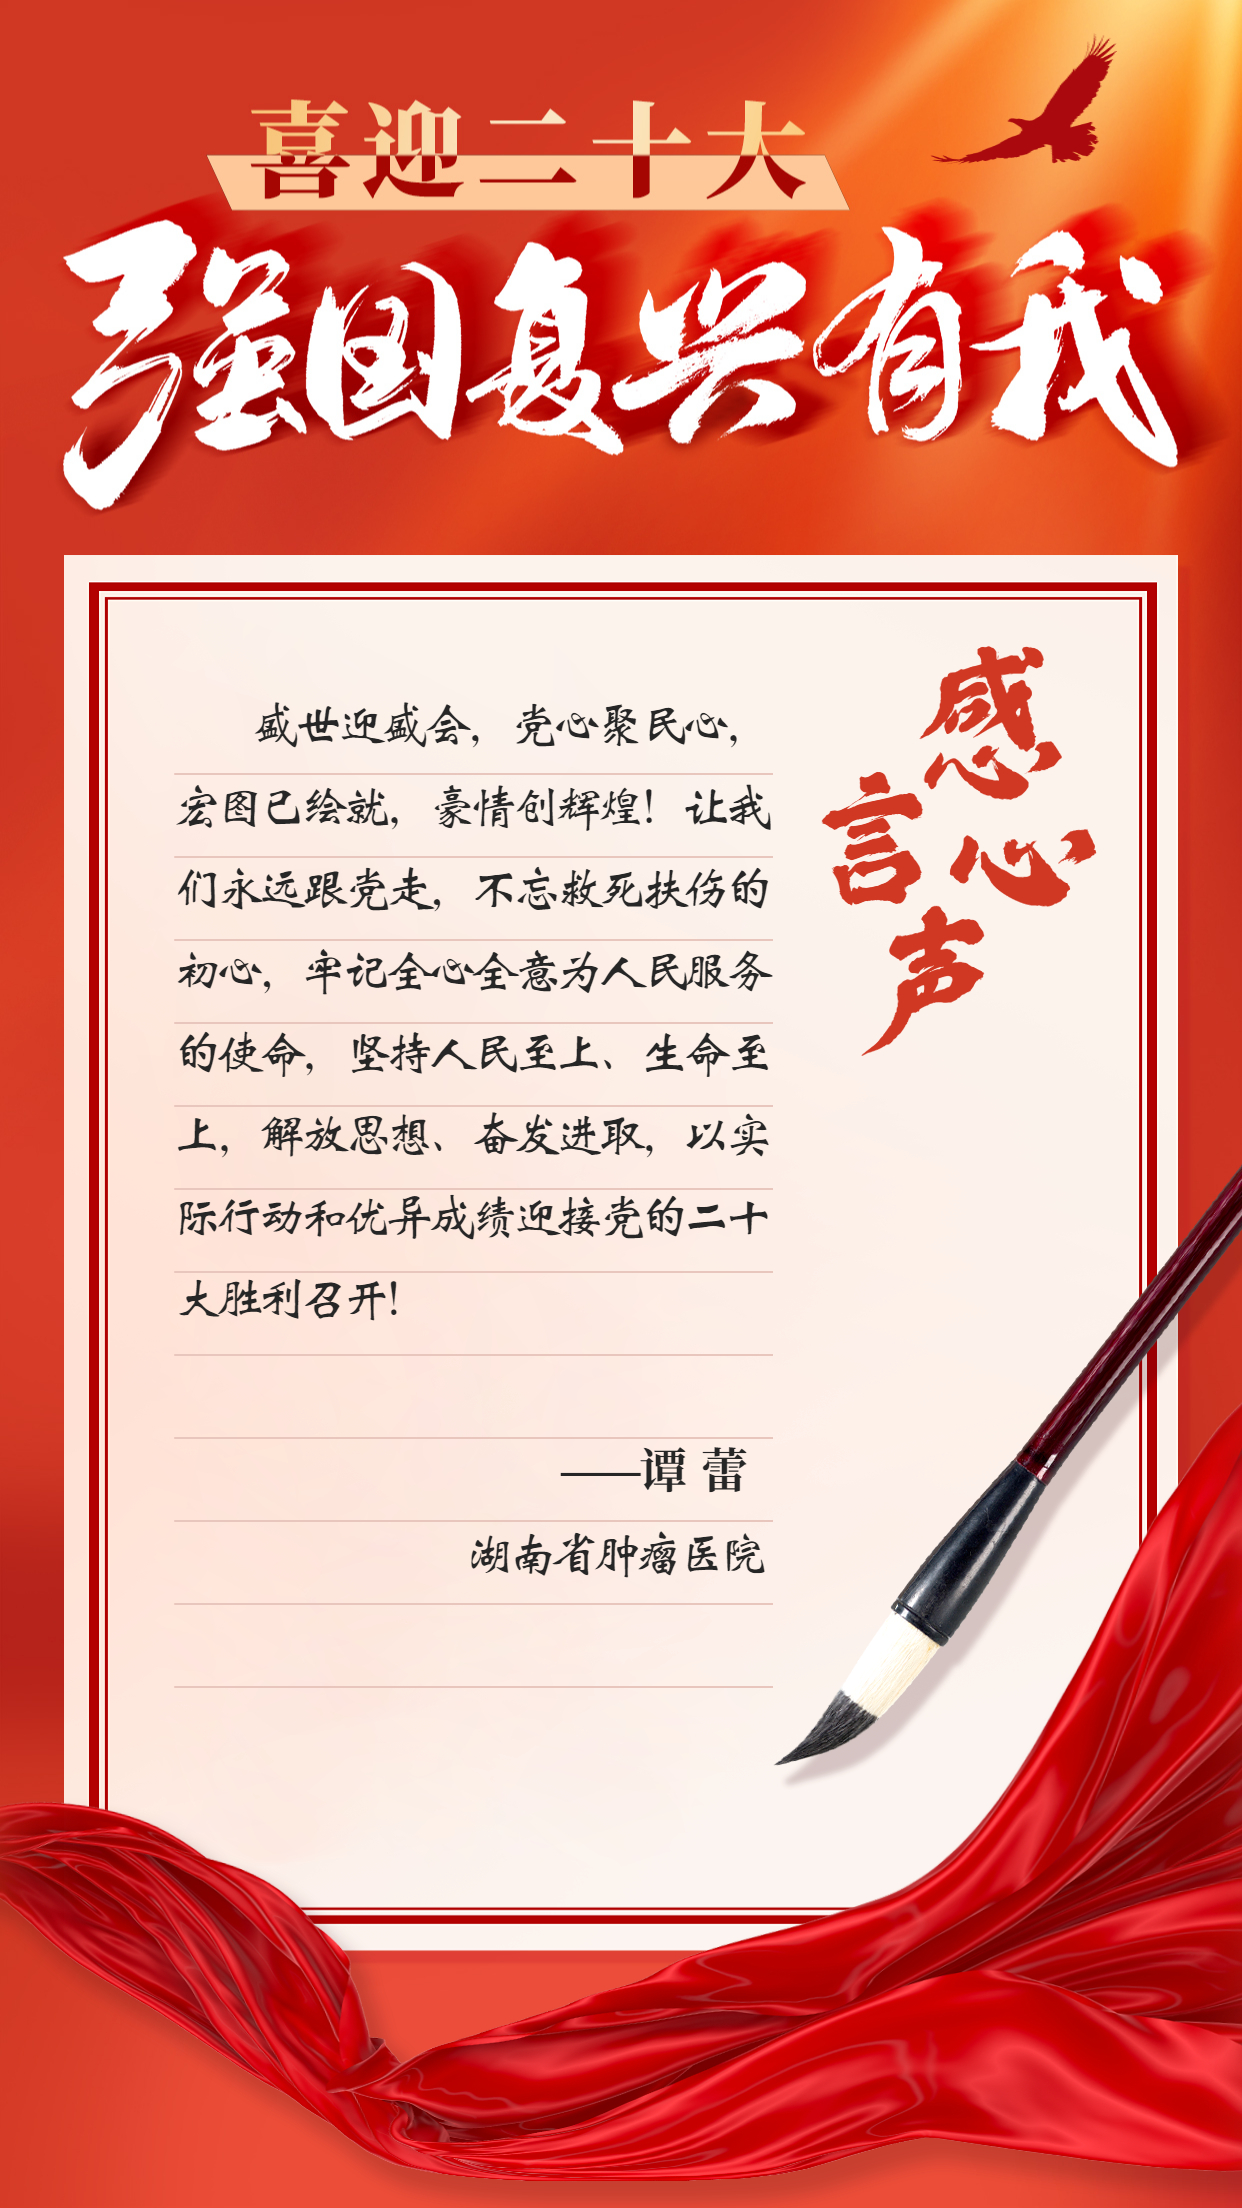 喜迎二十大
强国复兴有我
感言心声
盛世迎盛会，党心聚民心，
宏图已绘就，豪情创辉煌！让我
们永远跟党走，不忘救死扶伤的
初心，牢记全心全意为人民服务
的使命，坚持人民至上、生命至
上，解放思想、奋发进取，以实
际行动和优异成绩迎接党的二十
大胜利召开！
——谭 蕾
湖南省肿瘤医院